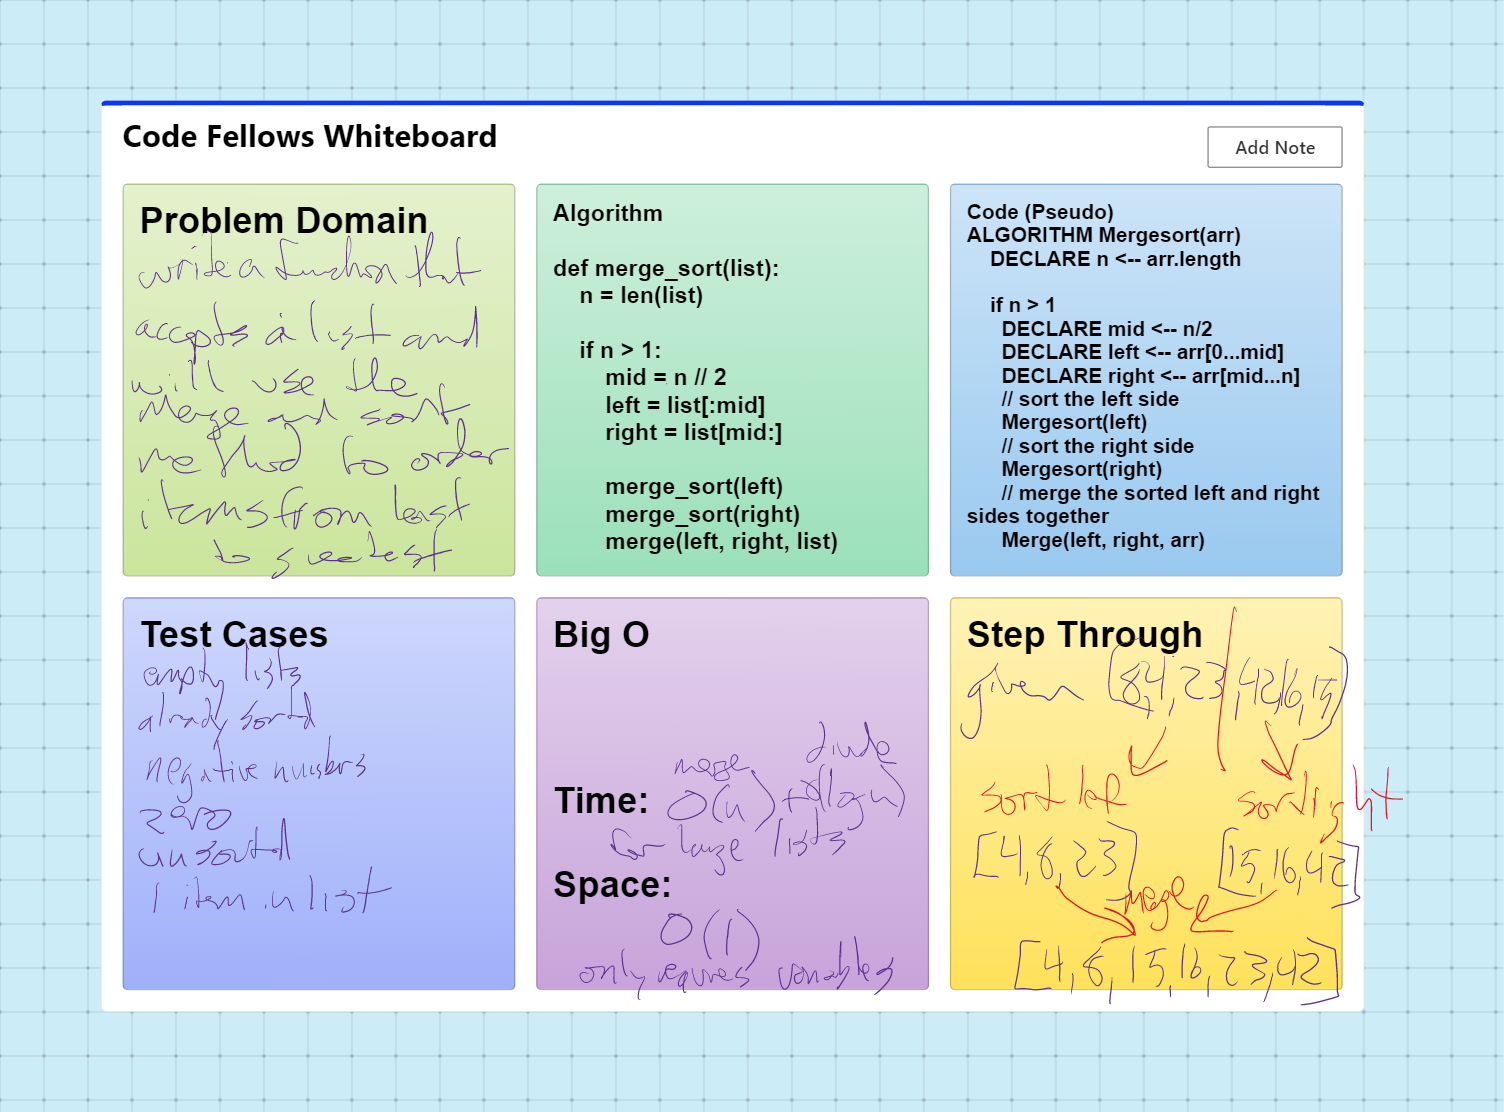 Code Fellows Whiteboard
Add Note
Problem Domain
write a function that
accepts a list and
will use the
Merge and sort
method to order
items from least
to greatest
Algorithm
def merge_sort(list):
n = len(list)
if n > 1:
mid = n // 2
left = list[:mid]
right = list[mid:]
merge_sort(left)
merge_sort(right)
merge(left, right, list)
Code (Pseudo)
ALGORITHM Mergesort(arr)
DECLARE n <-- arr.length
if n > 1
DECLARE mid <-- n/2
DECLARE left <-- arr[0...mid]
DECLARE right <-- arr[mid...n]
// sort the left side
Mergesort(left)
// sort the right side
Mergesort(right)
// merge the sorted left and right
sides together
Merge(left, right, arr)
Test Cases
empty lists
already sorted
negative numbers
zero
unsorted
1 item in list
Big O
merge divide
Time: O(n) + O(log n)
for large lists
Space:
O(1)
only requires variables
Step Through
given [8,4,23,42,16,15]
sort left sort right
[4,8,23] [15,16,42]
merge
[4,8,15,16,23,42]